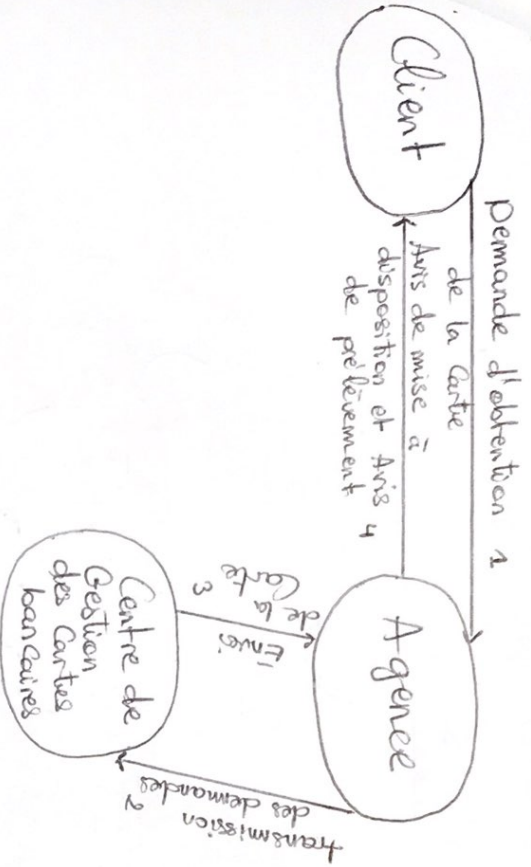 Client
Demande d'obtention 1
de la Carte
Avis de mise à
disposition et Avis 4
de prélèvement
Agence
Envoi
de la
Carte
3
transmission
des demandes 2
Centre de
Gestion
des Cartes
bancaires